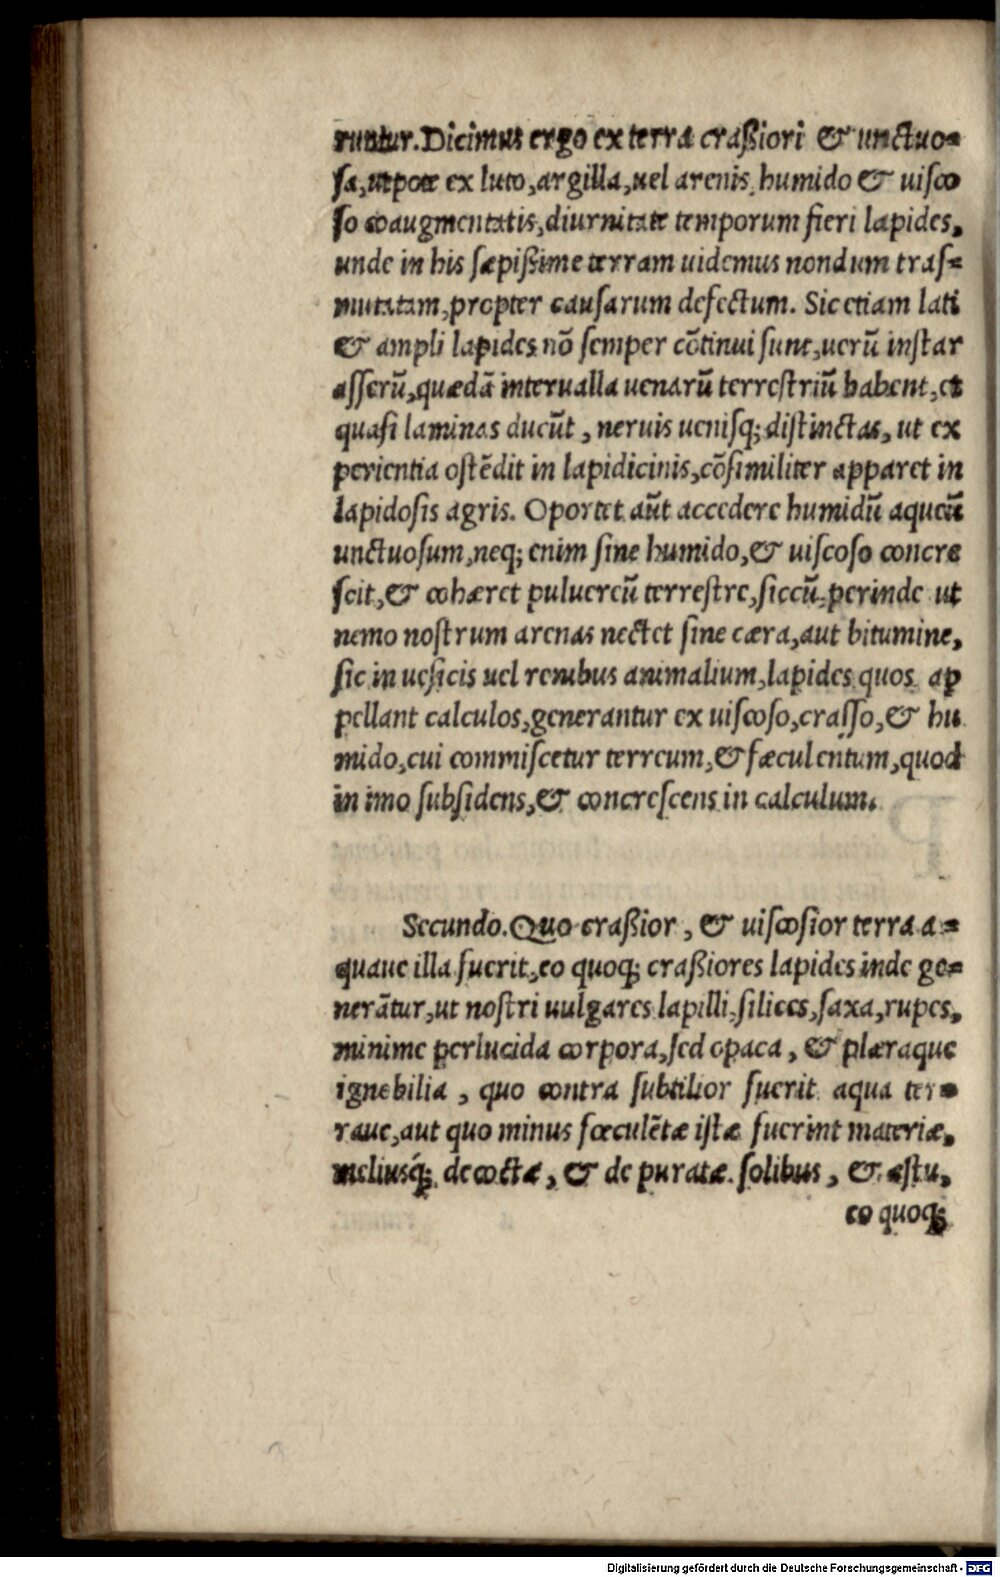 runtur. Dicimus ergo ex terra craßiori & unctuo-
sa, utpote ex luto, argilla, uel arenis, humido & uisco
so coaugmentatis, diurnitate temporum fieri lapides,
unde in his sæpißime terram uidemus nondum tras-
mutatam, propter causarum defectum. Sic etiam lati
& ampli lapides nō semper cōtinui sunt, uerū instar
asserū, quædā interualla uenarū terrestriū habent, et
quasi laminas ducūt, neruis uenisq; distinctas, ut ex
perientia ostēdit in lapidicinis, cōsimiliter apparet in
lapidosis agris. Oportet aūt accedere humidū aqueū
unctuosum, neq; enim sine humido, & uiscoso concre
scit, & cohæret puluereū terrestre, siccū, perinde ut
nemo nostrum arenas nectet sine cæra, aut bitumine,
sic in uesicis uel renibus animalium, lapides quos ap
pellant calculos, generantur ex uiscoso, crasso, & hu
mido, cui commiscetur terreum, & fæculentum, quod
in imo subsidens, & concrescens in calculum.
Secundo. Quo craßior, & uiscosior terra a-
quaue illa fuerit, eo quoq; craßiores lapides inde ge-
nerātur, ut nostri uulgares lapilli, silices, saxa, rupes,
minime perlucida corpora, sed opaca, & plæraque
ignobilia, quo contra subtilior fuerit aqua ter-
raue, aut quo minus fœculētæ istæ fuerint materiæ,
meliusq́; decoctæ, & depuratæ solibus, & æstu,
eo quoq;
Digitalisierung gefördert durch die Deutsche Forschungsgemeinschaft - DFG